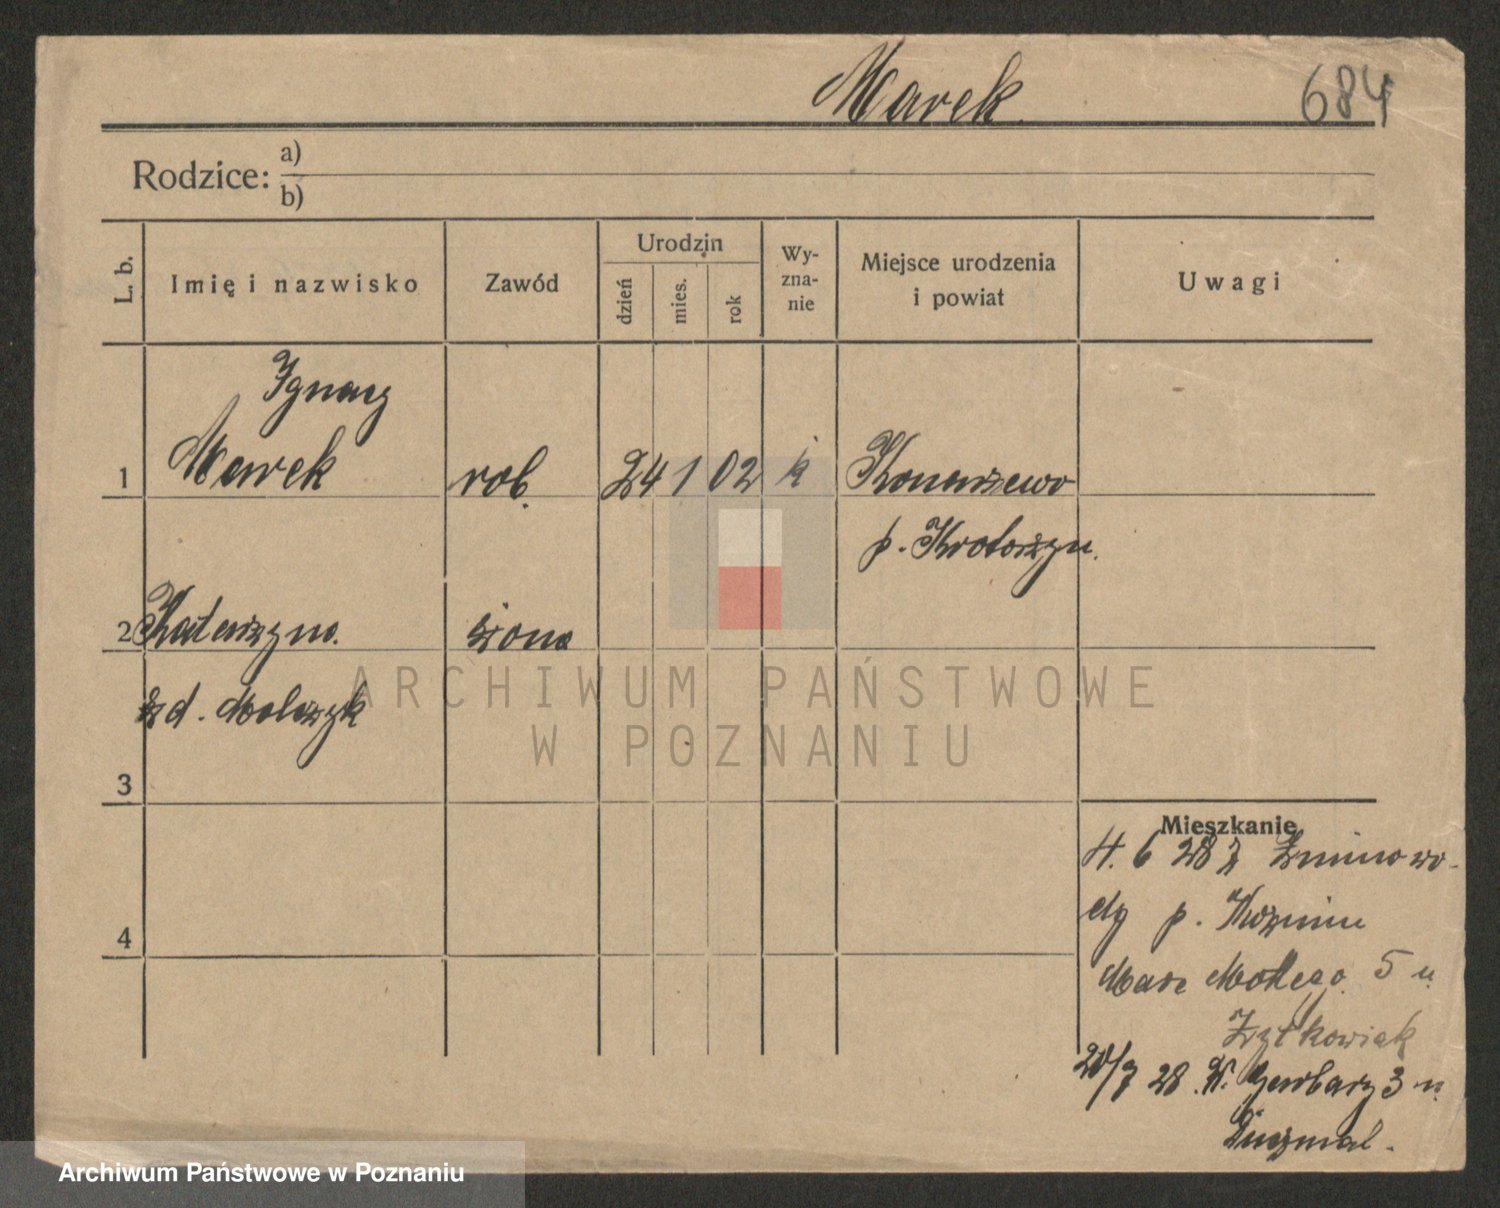 Marek
684
Rodzice: a)
b)
L. b.
Imię i nazwisko
Zawód
Urodzin
dzień
mies.
rok
Wy-
zna-
nie
Miejsce urodzenia
i powiat
Uwagi
Ignacy
1 Marek rob. 24 1 02 k Konarzewo
p. Krotoszyn.
2 Katarzyna żona
zd. Molczyk
3
4
Mieszkanie
4. 6 28 z
p. Koźmin
5 u
Żytkowiak
20/7 28 W. Garbary 3 u
ARCHIWUM PAŃSTWOWE
W POZNANIU
Archiwum Państwowe w Poznaniu